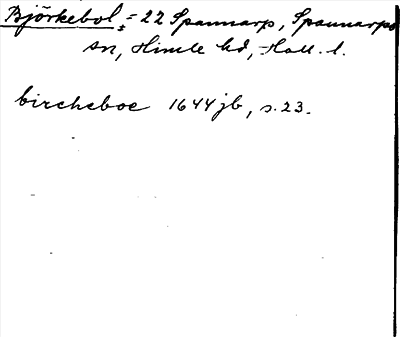 Björkebol = 22 Spannarp, Spannarps
sn, Himle hd, Hall. l.
bircheboe 1644 jb, s. 23.